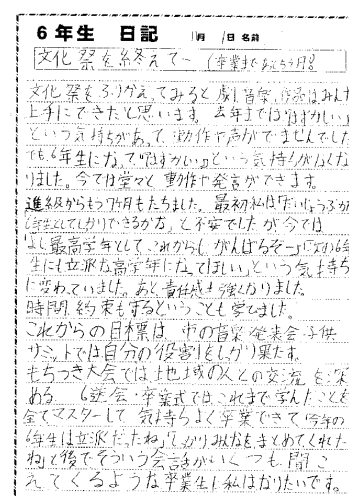 6年生 日記 11月 1日 名前
文化祭を終えて (卒業まであと5ヶ月)
文化祭をふりかえってみると劇、音楽、作品はみんな
上手にできたと思います。去年までは「はずかしい」
という気持ちがあって動作や声がでませんでした
でも6年生になって「はずかしい」という気持ちがなくな
りました。今では堂々と動作や発言ができます。
進級からもう7ヶ月もたちました。最初私は「だいじょうぶか
6年生としてしっかりできるかな」と不安でしたが今では
「よし最高学年としてこれからもがんばるぞー」「次の6年
生にも立派な高学年になってほしい」という気持ち
に変わていました。あと責任感も強くなりました。
時間、約束も守るということも学びました。
これからの目標は市の音楽発表会、子供
サミットでは自分の役割をしっかり果たす。
もちつき大会では、地域の人との交流を深
める。6送会・卒業式ではこれまで学んだことを
全てマスターして気持ちよく卒業できて「今年の
6年生は立派だったね」「しっかりみんなをまとめてくれた
ね」と後でそういう会話がいくつも聞こ
えてくるような卒業生に私はなりたいです。